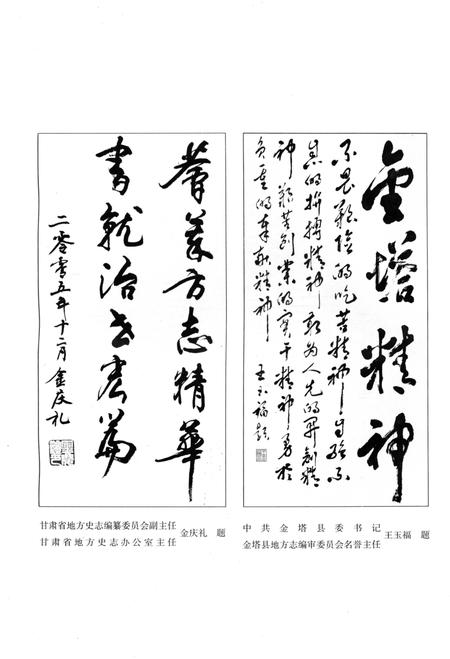 荟萃方志精华
书就治世宏篇
二零零五年十二月 金庆礼
甘肃省地方史志编纂委员会副主任
甘肃省地方史志办公室主任
金庆礼 题
金塔精神
不畏艰险的吃苦精神 自强不
息的拼搏精神 敢为人先的开创精
神 艰苦创业的实干精神 勇于
负重的奉献精神
王玉福题
中共金塔县委书记
金塔县地方志编审委员会名誉主任
王玉福 题